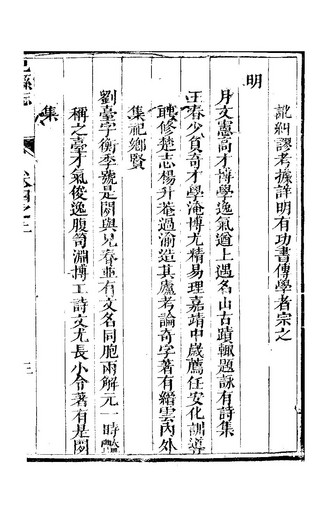 訛糾謬考據詳明有功書傳學者宗之
明
月文憲高才博學逸氣遒上遇名山古蹟輒題詠有詩集
王春少負奇才學淹博尤精易理嘉靖中歲薦任安化訓導
聘修楚志楊升菴過渝造其廬考論奇字著有縉雲內外
集祀鄉賢
劉臺字衡季號是閼與兄春並有文名同胞兩解元一時豔
稱之臺才氣俊逸腹笥淵博工詩文尤長小令著有是閼
集